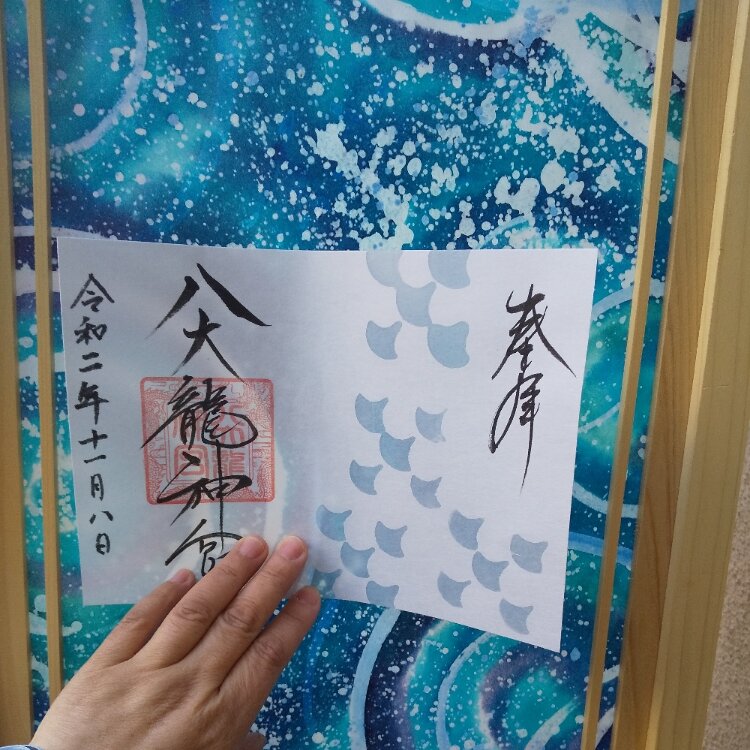 奉拝
八大龍神宮
令和二年十一月八日